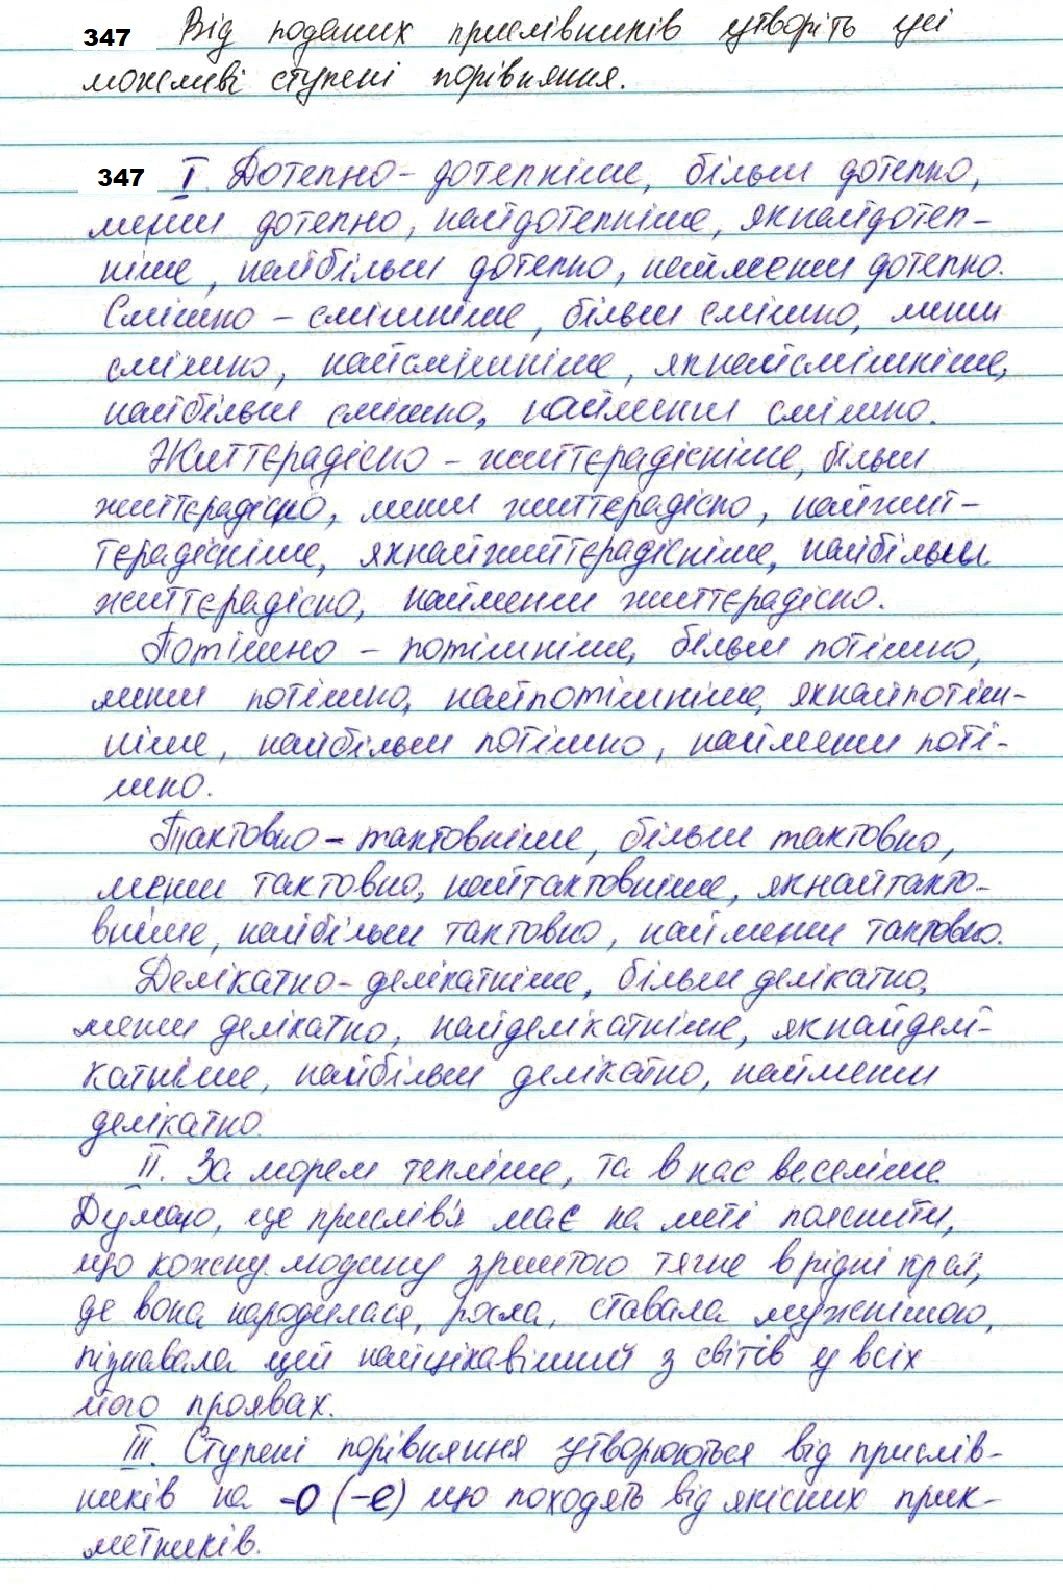 347 Від поданих прислівників утворіть усі
можливі ступені порівняння.
347 I. Дотепно - дотепніше, більш дотепно,
менш дотепно, найдотепніше, якнайдотеп-
ніше, найбільш дотепно, найменш дотепно.
Смішно - смішніше, більш смішно, менш
смішно, найсмішніше, якнайсмішніше,
найбільш смішно, найменш смішно.
Життєрадісно - життєрадісніше, більш
життєрадісно, менш життєрадісно, найжит-
тєрадісніше, якнайжиттєрадісніше, найбільш
життєрадісно, найменш життєрадісно.
Потішно - потішніше, більш потішно,
менш потішно, найпотішніше, якнайпотіш-
ніше, найбільш потішно, найменш поті-
шно.
Тактовно - тактовніше, більш тактовно,
менш тактовно, найтактовніше, якнайтакто-
вніше, найбільш тактовно, найменш тактовно.
Делікатно - делікатніше, більш делікатно,
менш делікатно, найделікатніше, якнайделі-
катніше, найбільш делікатно, найменш
делікатно.
II. За морем тепліше, та в нас веселіше.
Думаю, це прислів'я має на меті пояснити,
що кожну людину зрештою тягне в рідні края,
де вона народилася, росла, ставала мужнішою,
пізнавала цей найцікавіший з світів у всіх
його проявах.
III. Ступені порівняння утворюються від прислів-
ників на -о (-е) що походять від якісних прик-
метників.